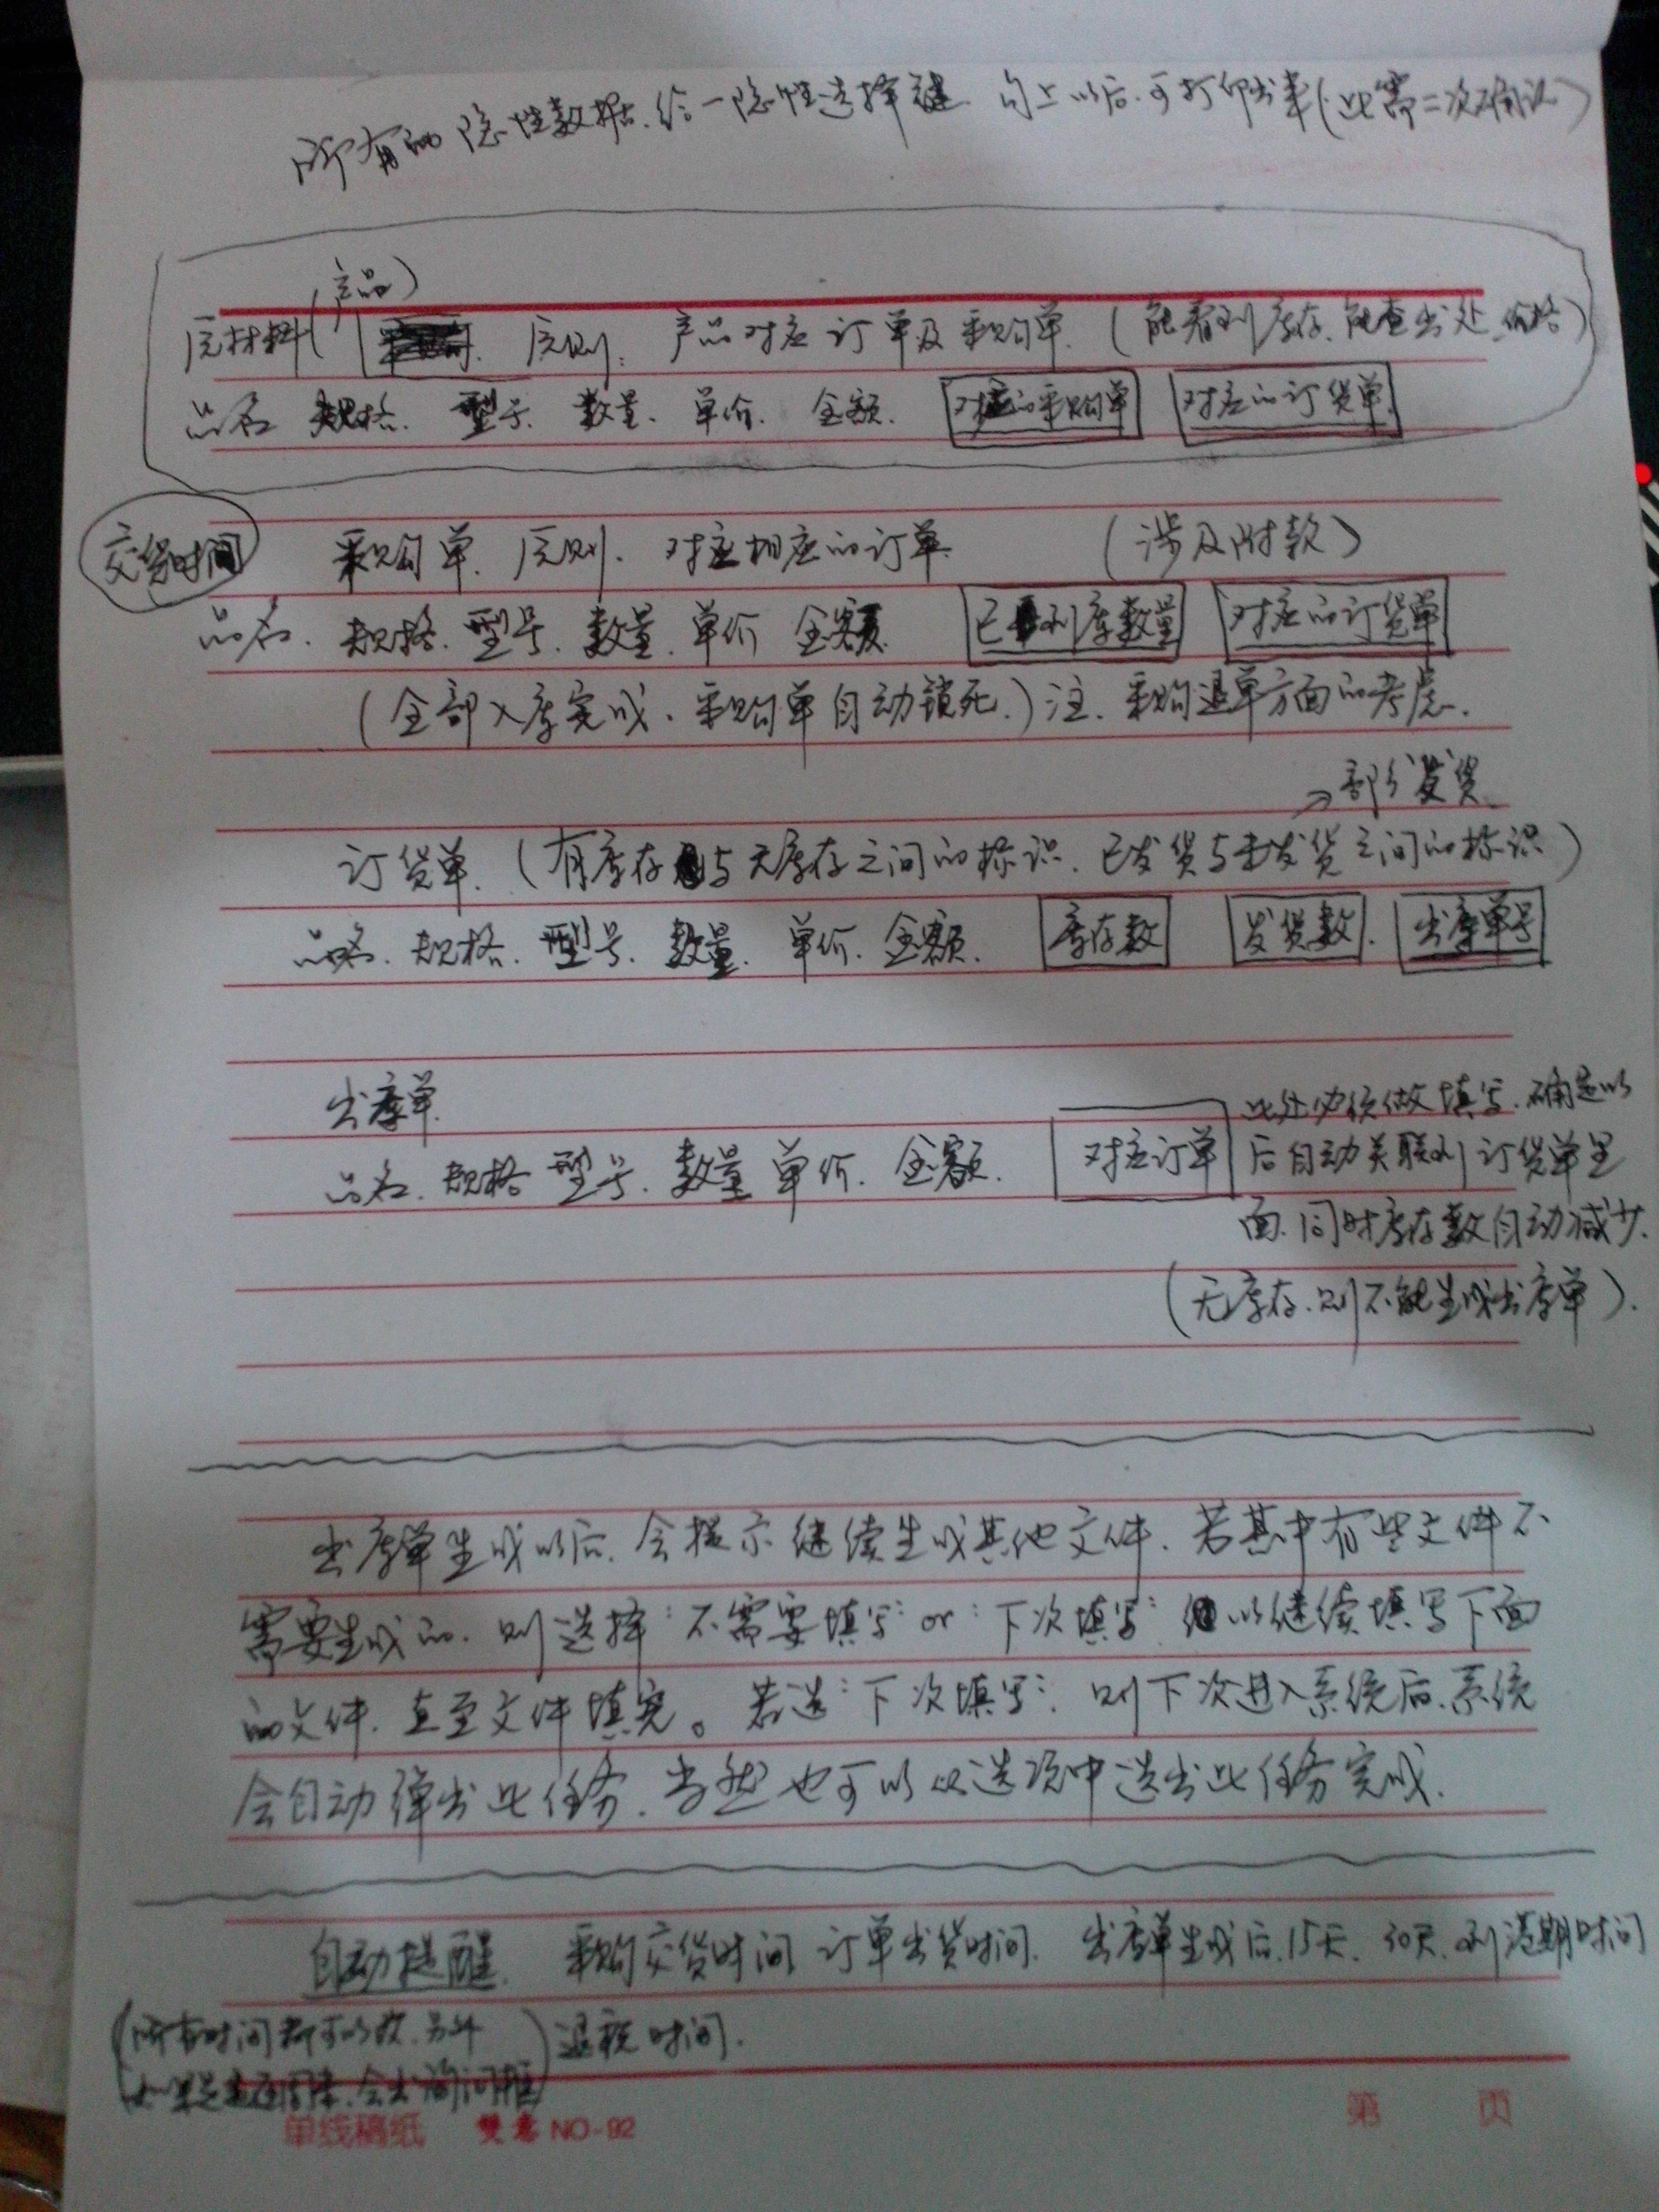 所有的隐性数据.给一隐性选择键.勾上以后.可打印出来(此需二次确认)
(产品)
原材料 原则: 产品对应订单及采购单.(能看到库存.能查出处.价格)
品名 规格. 型号. 数量. 单价. 金额. 对应的采购单 对应的订货单
交货时间
采购单. 原则. 对应相应的订单. (涉及付款)
品名. 规格. 型号. 数量. 单价 金额. 已到库数量 对应的订货单
(全部入库完成.采购单自动锁死.)注.采购退单方面的考虑.
→部分发货
订货单.(有库存与无库存之间的标识.已发货与未发货之间的标识)
品名. 规格. 型号. 数量. 单价. 金额. 库存数 发货数. 出库单号
出库单.
品名. 规格 型号. 数量 单价. 金额. 对应订单
此处必须做填写.确定以
后自动关联到订货单里
面.同时库存数自动减少.
(无库存.则不能生成出库单).
出库单生成以后.会提示继续生成其他文件.若其中有些文件不
需要生成的.则选择"不需要填写"or"下次填写" 以继续填写下面
的文件.直至文件填完。若选"下次填写".则下次进入系统后.系统
会自动弹出此任务.当然也可以从选项中选出此任务完成.
自动提醒. 采购交货时间 订单出货时间. 出库单生成后.15天.30天.到港期时间
退税时间.
(所有时间都可以改.另外
会出询问框)
单线稿纸 NO-92 第 页